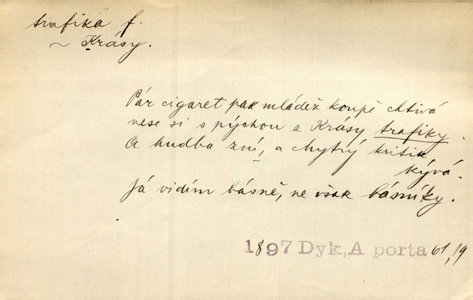 trafika f.
~ Krásy.
Pár cigaret pak mládež koupě chtivá
nese si s pýchou z Krásy trafiky.
A hudba zní, a chytrý kritik
kývá.
Já vidím básně, ne však básníky.
1897 Dyk, A porta 61,19